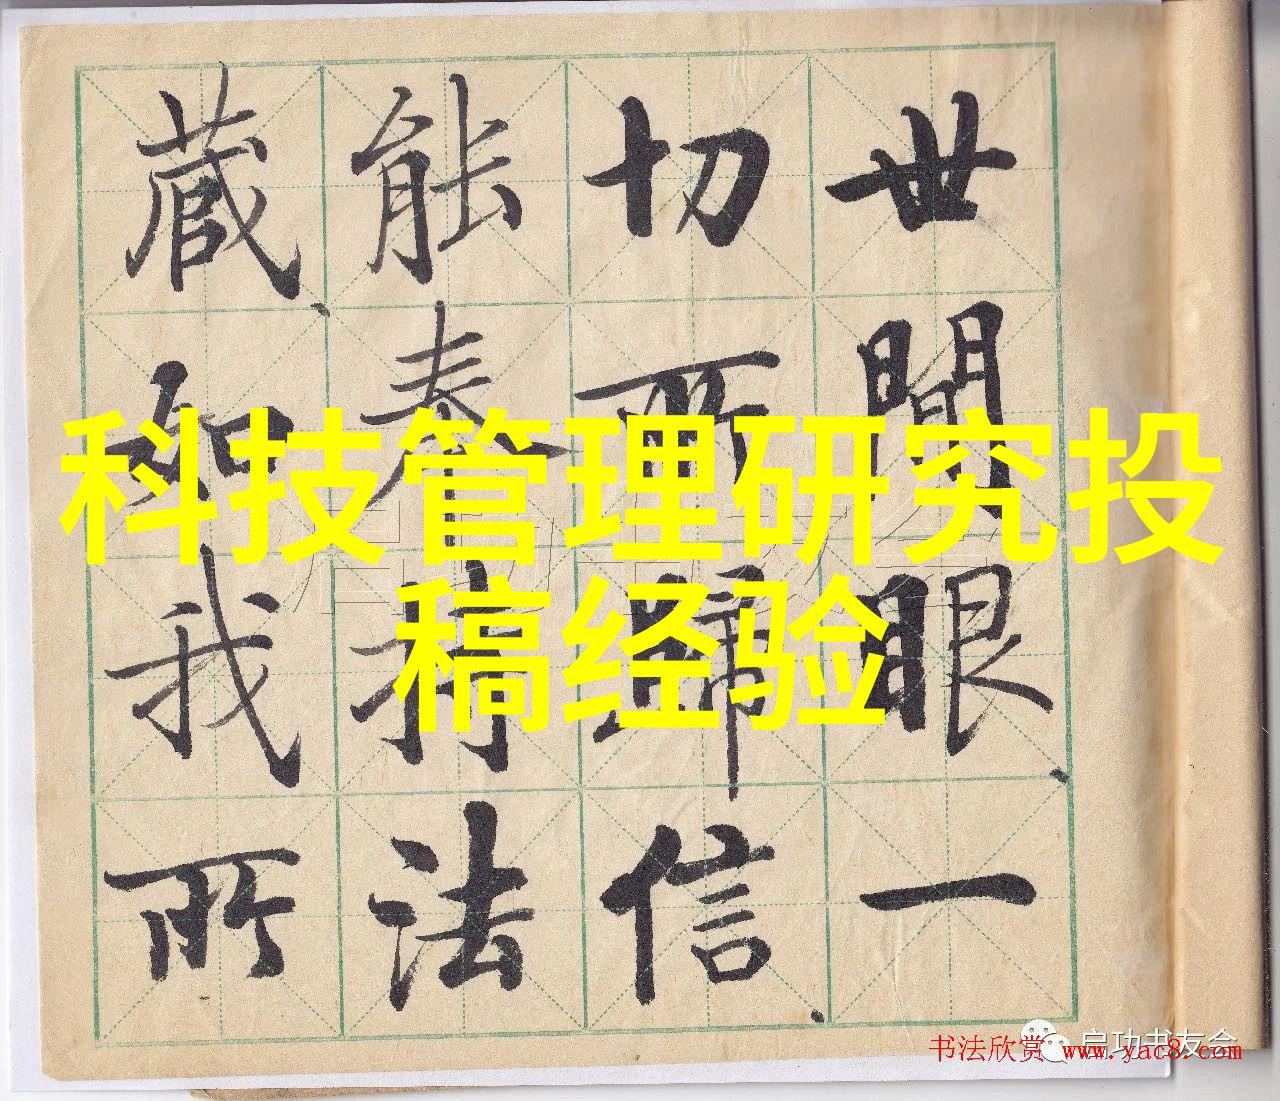 世間眼一
切所歸信
能奉持法
藏知我所
科技管理研究投
稿经验
启功书友会
书法欣赏 www.yac8.com